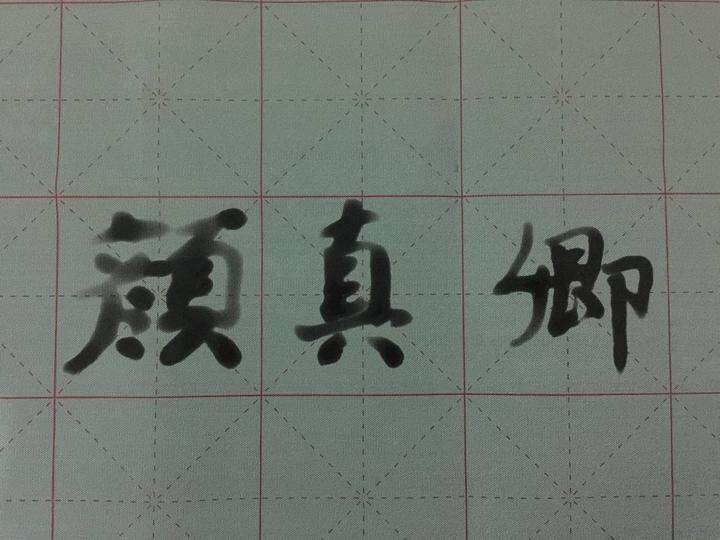 顔真卿